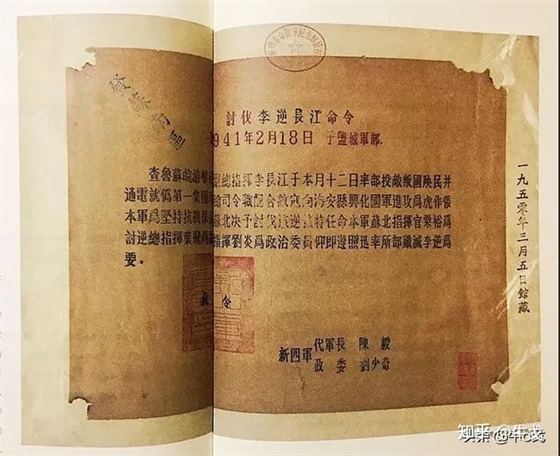 討伐李逆長江命令
1941年2月18日 于鹽城軍部
查魯蘇皖游擊總指揮李長江于本月十二日率部投敵叛國陜民并
通電就偽第一集團總司令職配合敵寇向海安縣興化國軍進攻為虎作倀
本軍為堅持抗戰保蘇北決予討伐該逆茲特任命本軍蘇北指揮官粟裕為
討逆總指揮葉飛為指揮劉炎為政治委員仰即遵照迅率所部殲滅李逆為
要.
令
新四軍
代軍長 陳毅
政委 劉少奇
一九五零年三月五日館藏
知乎